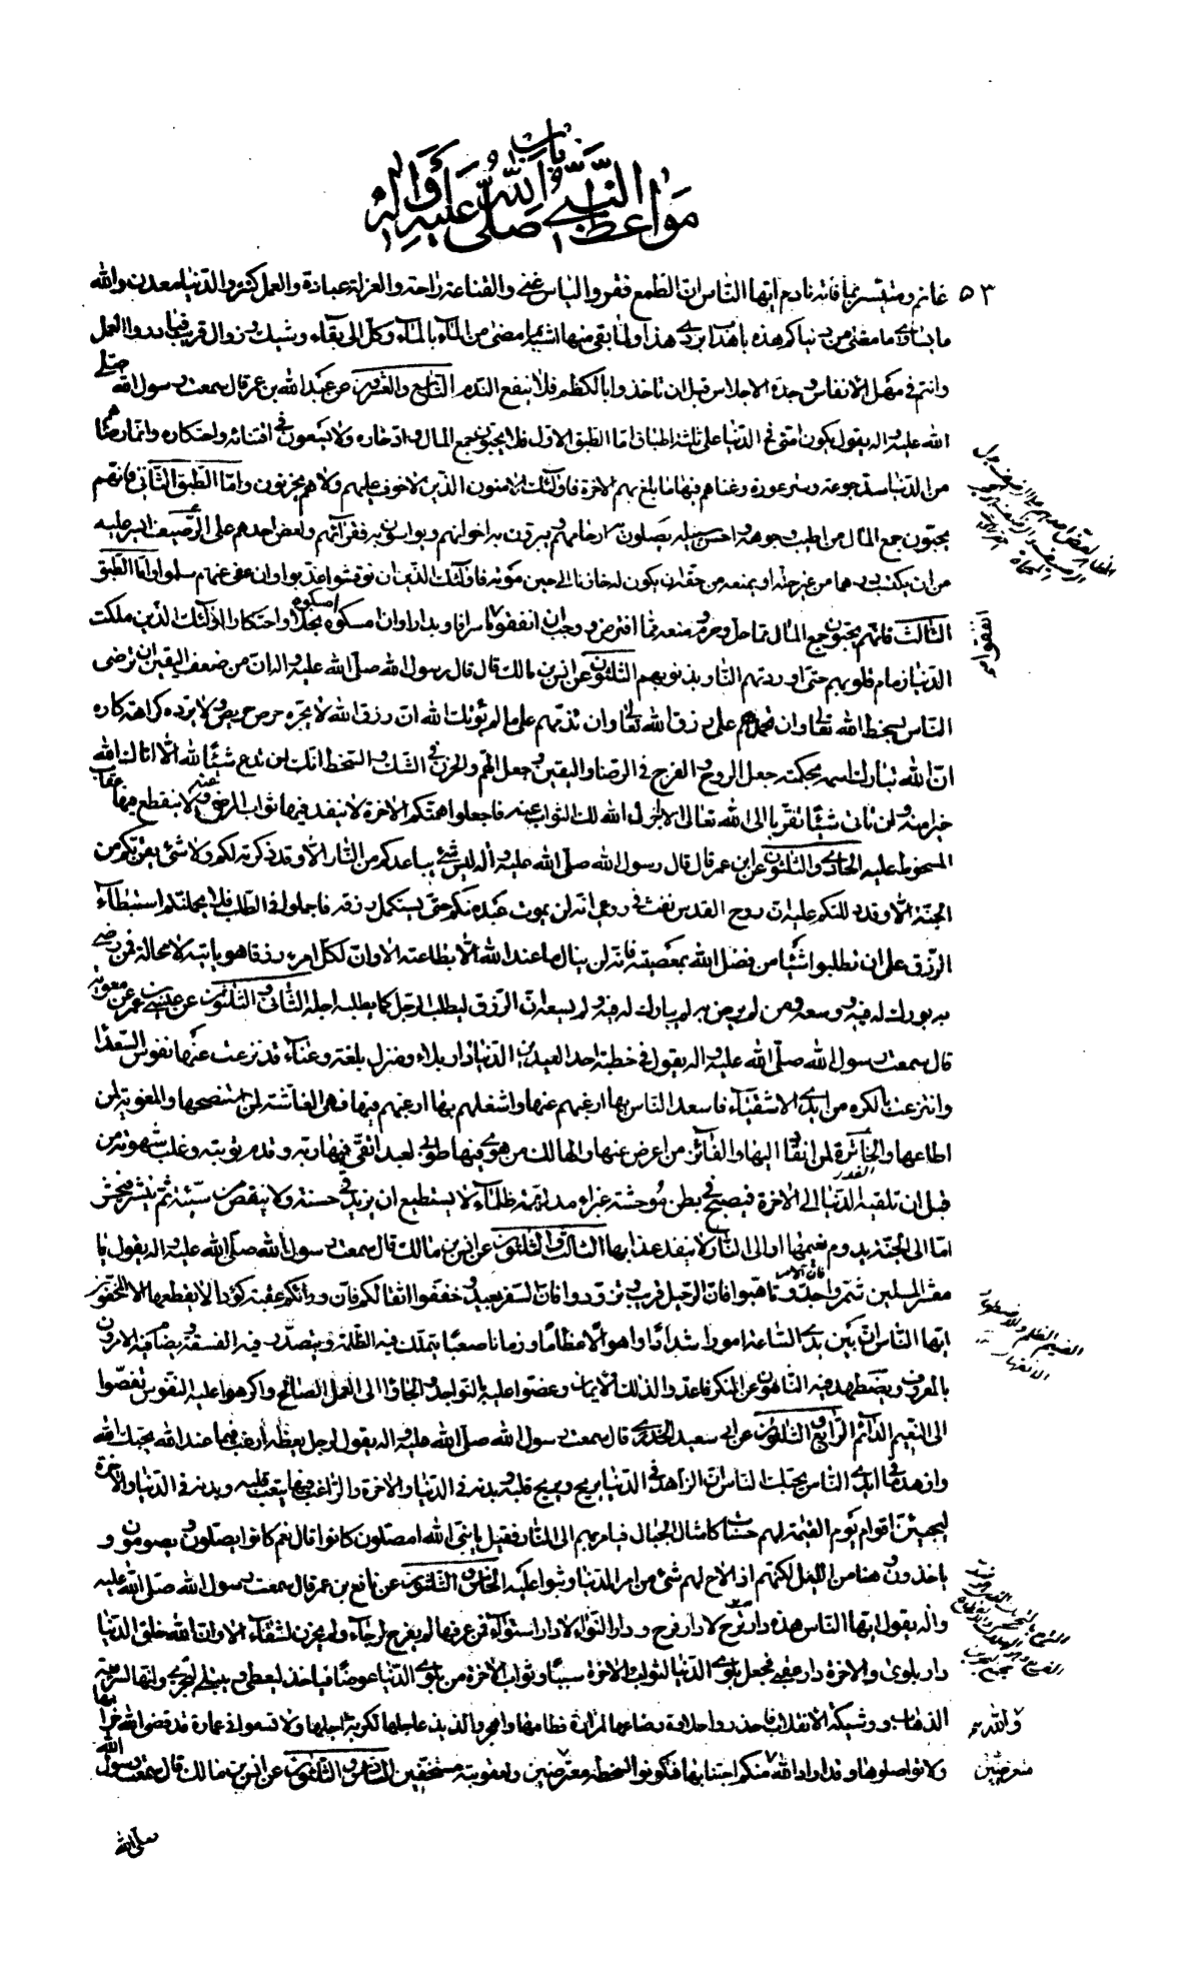 باب
مواعظ النبي صلى الله عليه وآله
٥٣
غانم ومبتسر بما فاته نادم ايها الناس ان الطمع فقر والياس غنى والقناعة راحة والعزلة عبادة والعمل كنز والدنيا معدن والله
ما يساوي ما مضى من دنياكم هذه باهداب بردي هذا ولما بقي منها اشبه بما مضى من الماء بالماء وكل الى بقاء وشيك وزوال قريب فبادروا العمل
وانتم في مهل الانفاس وجدة الاحلاس قبل ان تاخذوا بالكظم فلا ينفع الندم التاسع والعشرون عن عبد الله بن عمر قال سمعت رسول الله صلى
الله عليه واله يقول يكون امتي في الدنيا على ثلثة اطباق اما الطبق الاول فلا يحبون جمع المال وادخاره ولا يسعون في اقتنائه واحتكاره وانما رضاهم
من الدنيا سد جوعة وستر عورة وغناهم فيها ما بلغ بهم الاخرة فاولئك الامنون الذين لا خوف عليهم ولا هم يحزنون واما الطبق الثاني فانهم
يحبون جمع المال من اطيب وجوهه واحسن سبيله يصلون به ارحامهم ويبرون به اخوانهم ويواسون به فقرائهم ولعض احدهم على الرضيف ايسر عليه
من ان يكتسب درهما من غير حله او يمنعه من حقه ان يكون له خازنا الى حين موته فاولئك الذين ان نوقشوا عذبوا وان عفي عنهم سلموا واما الطبق
الثالث فانهم يحبون جمع المال مما حل وحرم ومنعه مما افترض ووجب ان انفقوه اسرافا وبدارا وان امسكوه بخلا واحتكارا اولئك الذين ملكت
الدنيا زمام قلوبهم حتى اوردتهم النار بذنوبهم الثلثون عن انس بن مالك قال قال رسول الله صلى الله عليه واله ان من ضعف اليقين ان ترضى
الناس بسخط الله تعالى وان تحمدهم على رزق الله تعالى وان تذمهم على ما لم يؤتك الله ان رزق الله لا يجره حرص حريص ولا يرده كراهة كاره
ان الله تبارك اسمه بحكمته جعل الروح والفرج في الرضا واليقين وجعل الهم والحزن في الشك والسخط انك لن تدع شيئا لله الا اتاك الله
خيرا منه ولن تاتي شيئا تقربا الى الله تعالى الا اجزل الله لك الثواب عنه فاجعلوا همتكم الاخرة لا ينفد فيها ثواب المرضي عنه ولا ينقطع فيها عقاب
المسخوط عليه الحادي والثلثون عن ابن عمر قال قال رسول الله صلى الله عليه واله ليس شيء يباعدكم من النار الا وقد ذكرته لكم ولا شيء يقربكم من
الجنة الا وقد دللتكم عليه ان روح القدس نفث في روعي انه لن يموت عبد منكم حتى يستكمل رزقه فاجملوا في الطلب فلا يحملنكم استبطاء
الرزق على ان تطلبوا شيئا من فضل الله بمعصيته فانه لن ينال ما عند الله الا بطاعته الا وان لكل امرء رزقا هو ياتيه لا محالة فمن رضي
به بورك له فيه ووسعه ومن لم يرض به لم يبارك له فيه ولم يسعه ان الرزق ليطلب الرجل كما يطلبه اجله الثاني والثلثون عن معوية
قال سمعت رسول الله صلى الله عليه واله يقول في خطبة احد العيدين الدنيا دار بلاء ومنزل بلغة وعناء قد نزعت عنها نفوس السعداء
وانتزعت بالكره من ايدي الاشقياء فاسعد الناس بها ارغبهم عنها واشغلهم بها ارغبهم فيها فهي الغاشة لمن استنصحها والمغوية لمن
اطاعها والخاترة لمن انقاد اليها والفائز من اعرض عنها والهالك من هوى فيها طوبى لعبد اتقى فيها ربه وقدم توبته وغلب شهوته من
قبل ان تلقيه الدنيا الى الاخرة فيصبح في بطن موحشة غبراء مدلهمة ظلماء لا يستطيع ان يزيد في حسنة ولا ينقص من سيئة ثم ينشر فيحشر
اما الى الجنة يدوم نعيمها او الى النار لا ينفد عذابها الثالث والثلثون عن انس بن مالك قال سمعت رسول الله صلى الله عليه واله يقول يا
معشر المسلمين شمروا فان الامر جد وتاهبوا فان الرحيل قريب وتزودوا فان السفر بعيد وخففوا اثقالكم فان ورائكم عقبة كؤدا لا يقطعها الا المخفون
ايها الناس ان بين يدي الساعة امورا شدادا واهوالا عظاما وزمانا صعبا يتملك فيه الظلمة ويتصدر فيه الفسقة ويضام فيه الامرون
بالمعروف ويضطهد فيه الناهون عن المنكر فاعدوا لذلك الايمان وعضوا عليه بالنواجذ والجاوا الى العمل الصالح واكرهوا عليه النفوس تفضوا
الى النعيم الدائم الرابع والثلثون عن ابي سعيد الخدري قال سمعت رسول الله صلى الله عليه واله يقول لرجل يعظه ارغب فيما عند الله يحبك الله
وازهد في ما ايدي الناس يحبك الناس ان الزاهد في الدنيا يريح ويريح قلبه وبدنه في الدنيا والاخرة والراغب فيها يتعب قلبه وبدنه في الدنيا والاخرة
ليجيئن اقوام يوم القيمة لهم حسنات كامثال الجبال فيامر بهم الى النار فقيل يا نبي الله امصلون كانوا قال نعم كانوا يصلون ويصومون و
ياخذون وهنا من الليل لكنهم اذا لاح لهم شيء من امر الدنيا وثبوا عليه الخامس والثلثون عن نافع بن عمر قال سمعت رسول الله صلى الله عليه
واله يقول ايها الناس هذه دار ترح لا دار فرح ودار التواء لا دار استواء فمن عرفها لم يفرح لرجاء ولم يحزن لشقاء الا وان الله خلق الدنيا
دار بلوى والاخرة دار عقبى فجعل بلوى الدنيا لثواب الاخرة سببا وثواب الاخرة من بلوى الدنيا عوضا فياخذ ليعطي ويبتلي ليجزي وانها لسريعة
الذهاب ووشيكة الانقلاب فاحذروا حلاوة رضاعها لمرارة فطامها واهجروا لذيذ عاجلها لكربة اجلها ولا تسعوا في عمارة قد قضى الله خرابها
ولا تواصلوها وقد اراد الله منكم اجتنابها فتكونوا لسخطه معترضين ولعقوبته مستحقين السادس والثلثون عن انس بن مالك قال سمعت رسول الله
انفقوه
والله
متعرضين
صلى الله